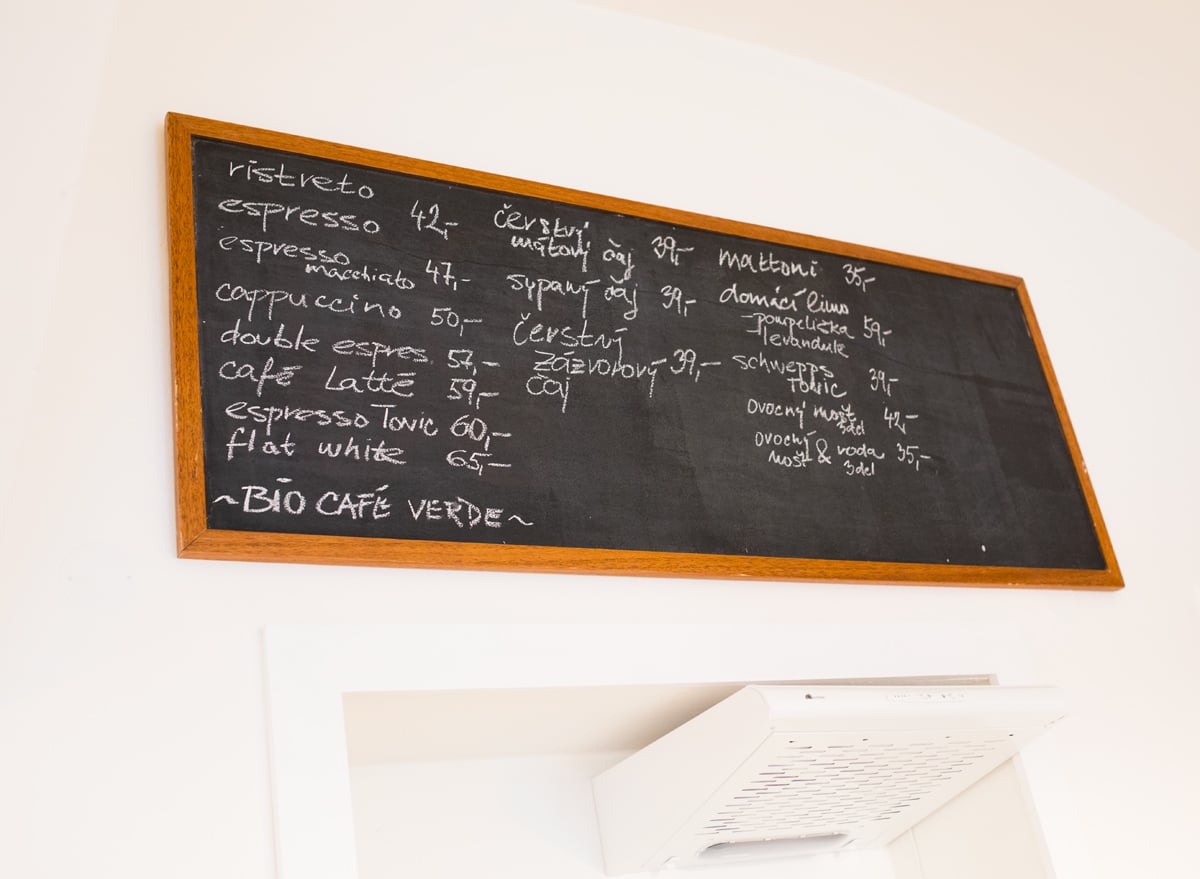 ristreto
espresso 42,-
espresso
macchiato 47,-
cappuccino 50,-
double espres. 57,-
café Latté 59,-
espresso Tonic 60,-
flat white 65,-
~BIO CAFÉ VERDE~
čerstvý
mátový čaj 39,-
sypaný čaj 39,-
čerstvý
zázvorový 39,-
čaj
mattoni 35,-
domácí limo
-pampeliška 59,-
levandule
schwepps
Tonic 39,-
ovocný mošt 42,-
3del
ovocný & voda 35,-
mošt 3del